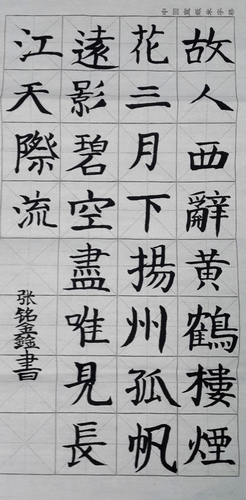 故人西辭黄鶴樓煙
花三月下揚州孤帆
遠影碧空盡唯見長
江天際流
张铭鑫書